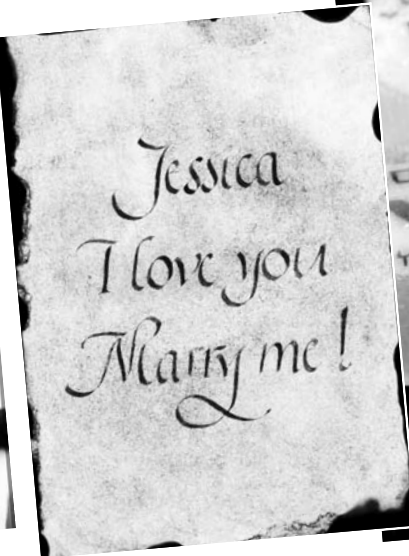 Jessica
I love you
Marry me!